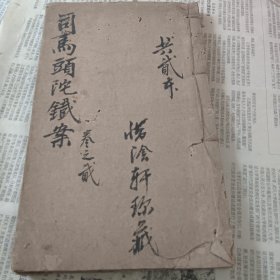 司馬頭陀鐵案
卷之貳
共貳本
惜陰軒珍藏